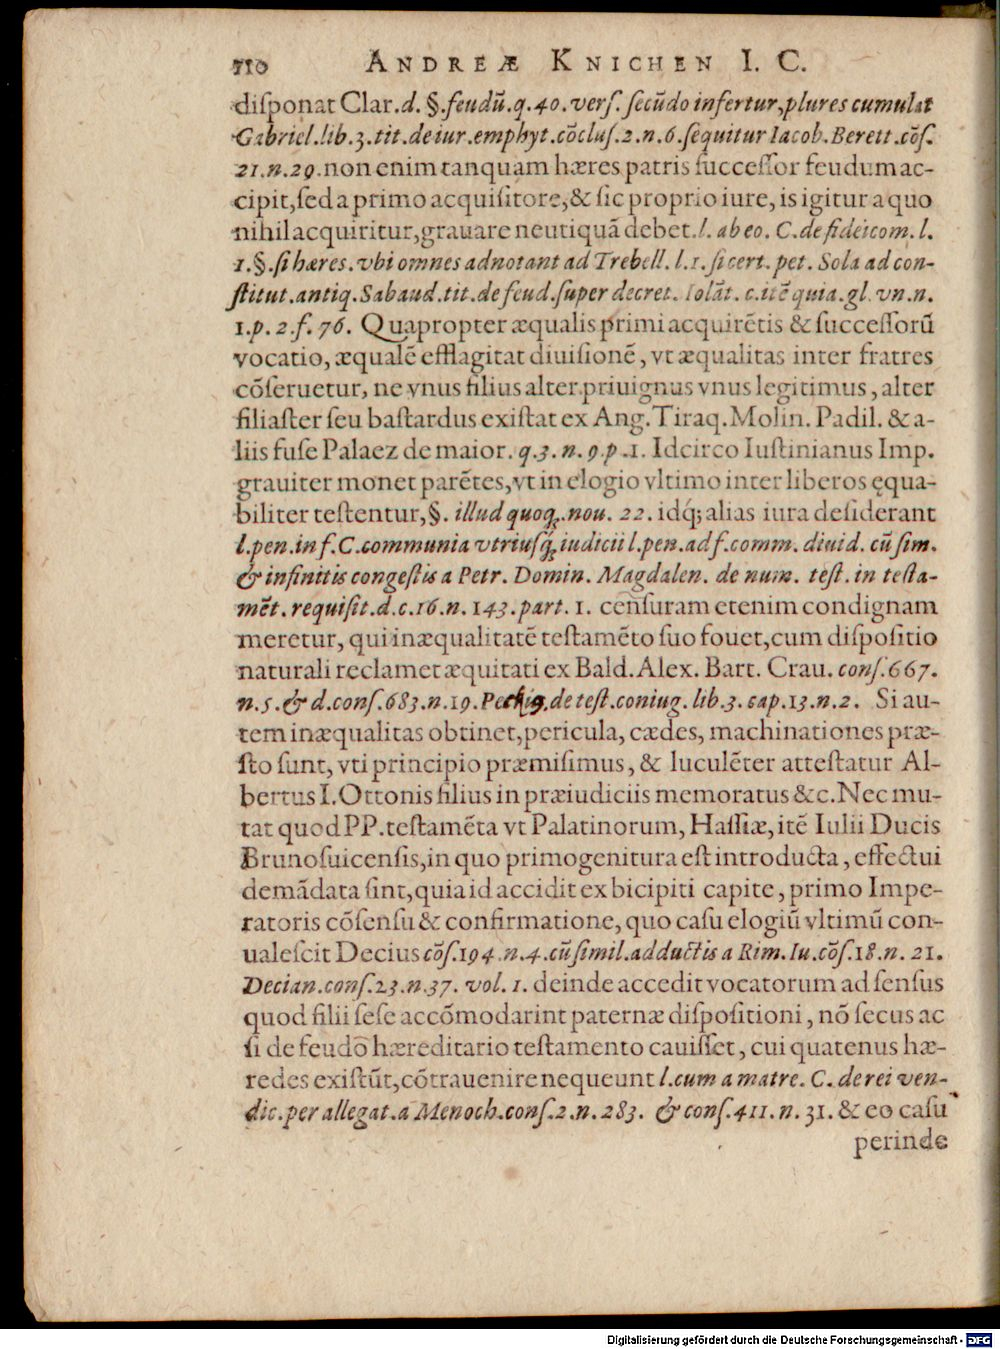 710 ANDREÆ KNICHEN I. C.
diſponat Clar. d. §. feudū. q. 40. verſ. ſecūdo infertur, plures cumulat
Gabriel. lib. 3. tit. de iur. emphyt. cōcluſ. 2. n. 6. ſequitur Iacob. Berett. cōſ.
21. n. 29. non enim tanquam hæres patris ſucceſſor feudum ac-
cipit, ſed a primo acquiſitore, & ſic proprio iure, is igitur a quo
nihil acquiritur, grauare neutiquā debet. l. ab eo. C. de fideicom. l.
1. §. ſi hæres. vbi omnes adnotant ad Trebell. l. 1. ſi cert. pet. Sola ad con-
ſtitut. antiq. Sabaud. tit. de feud. ſuper decret. Iolāt. c. itē quia. gl. vn. n.
1. p. 2. f. 76. Quapropter æqualis primi acquirētis & ſucceſſorū
vocatio, æqualē efflagitat diuiſionē, vt æqualitas inter fratres
cōſeruetur, ne vnus filius alter priuignus vnus legitimus, alter
filiaſter ſeu baſtardus exiſtat ex Ang. Tiraq. Molin. Padil. & a-
liis fuſe Palaez de maior. q. 3. n. 9. p. 1. Idcirco Iuſtinianus Imp.
grauiter monet parētes, vt in elogio vltimo inter liberos ęqua-
biliter teſtentur, §. illud quoq;. nou. 22. idq́; alias iura deſiderant
l. pen. in f. C. communia vtriuſq́; iudicii l. pen. ad f. comm. diuid. cū ſim.
& infinitis congeſtis a Petr. Domin. Magdalen. de num. teſt. in teſta-
mēt. requiſit. d. c. 16. n. 143. part. 1. cenſuram etenim condignam
meretur, qui inæqualitatē teſtamēto ſuo fouet, cum diſpoſitio
naturali reclamet æquitati ex Bald. Alex. Bart. Crau. conſ. 667.
n. 5. & d. conſ. 683. n. 19. Peckiꝯ, de teſt. coniug. lib. 3. cap. 13. n. 2. Si au-
tem inæqualitas obtinet, pericula, cædes, machinationes præ-
ſto ſunt, vti principio præmiſimus, & luculēter atteſtatur Al-
bertus I. Ottonis filius in præiudiciis memoratus &c. Nec mu-
tat quod PP. teſtamēta vt Palatinorum, Haſſiæ, itē Iulii Ducis
Brunoſuicenſis, in quo primogenitura eſt introducta, effectui
demādata ſint, quia id accidit ex bicipiti capite, primo Impe-
ratoris cōſenſu & confirmatione, quo caſu elogiū vltimū con-
ualeſcit Decius cōſ. 194. n. 4. cū ſimil. adductis a Rim. Iu. cōſ. 18. n. 21.
Decian. conſ. 23. n. 37. vol. 1. deinde accedit vocatorum ad ſenſus
quod filii ſeſe accōmodarint paternæ diſpoſitioni, nō ſecus ac
ſi de feudo hæreditario teſtamento cauiſſet, cui quatenus hæ-
redes exiſtūt, cōtrauenire nequeunt l. cum a matre. C. de rei ven-
dic. per allegat. a Menoch. conſ. 2. n. 283. & conſ. 411. n. 31. & eo caſu
perinde
Digitalisierung gefördert durch die Deutsche Forschungsgemeinschaft - DFG